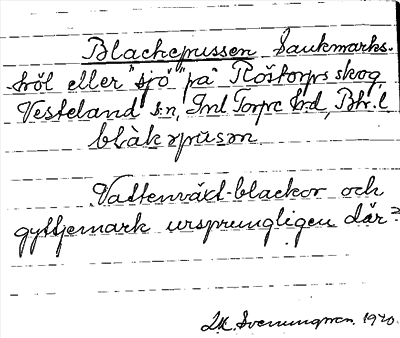 Blackepussen Saukmarks-
höl eller "sjö" på Röstorps skog
Vesteland sn, Inl Torpe hd, Bhl.
blàkəpusən
Vattenväxt-blackor och
gyttjemark ursprungligen där?
Svenungsson. 1920.